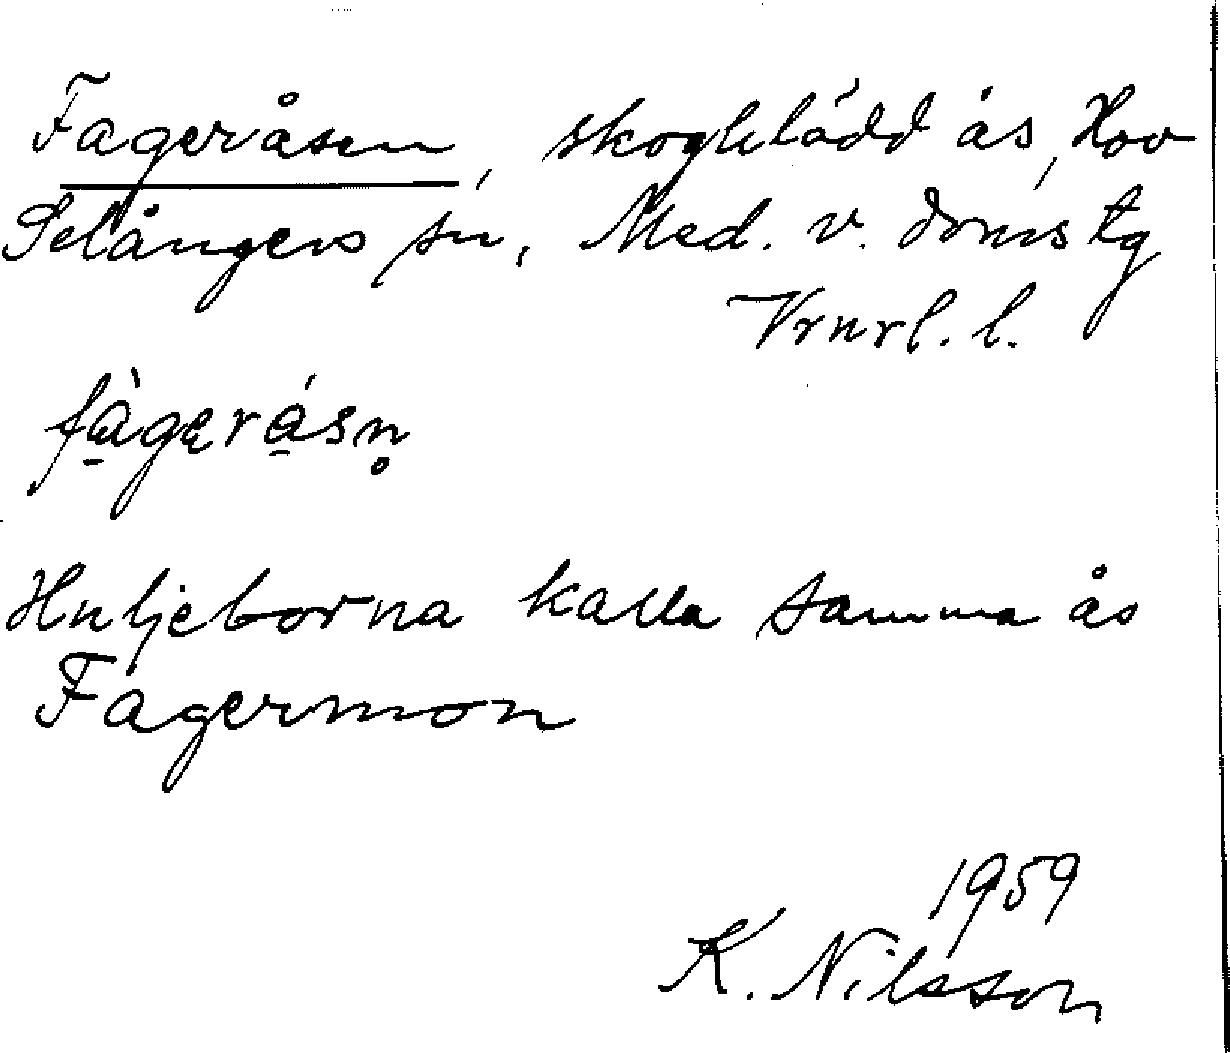 Fageråsen, skogklädd ås, Hov
Selångers sn, Med. v. doms tg
Vrnrl. l.
fàgerásn̥
Huljeborna kalla samma ås
Fagermon
1959
K. Nilsson